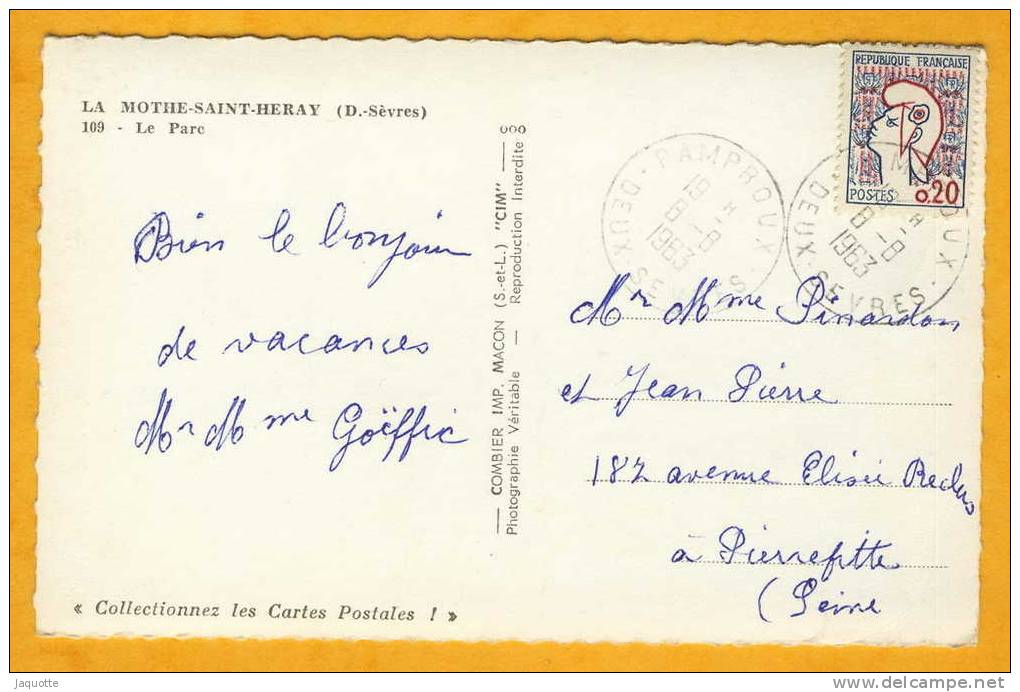 LA MOTHE-SAINT-HERAY (D.-Sèvres)
109 - Le Parc
Bien le bonjour
de vacances
Mr Mme Goëffic
« Collectionnez les Cartes Postales ! »
COMBIER IMP. MACON (S.-et-L.) "CIM"
Photographie Véritable — Reproduction Interdite
REPUBLIQUE FRANÇAISE
POSTES 0,20
PAMPROUX
19 H
8 - 8
1963
DEUX-SEVRES
19 H
8 - 8
1963
DEUX-SEVRES
Mr Mme Pinardon
et Jean Pierre
182 avenue Elisée Reclus
à Pierrefitte
(Seine
Jaquotte
www.delcampe.net